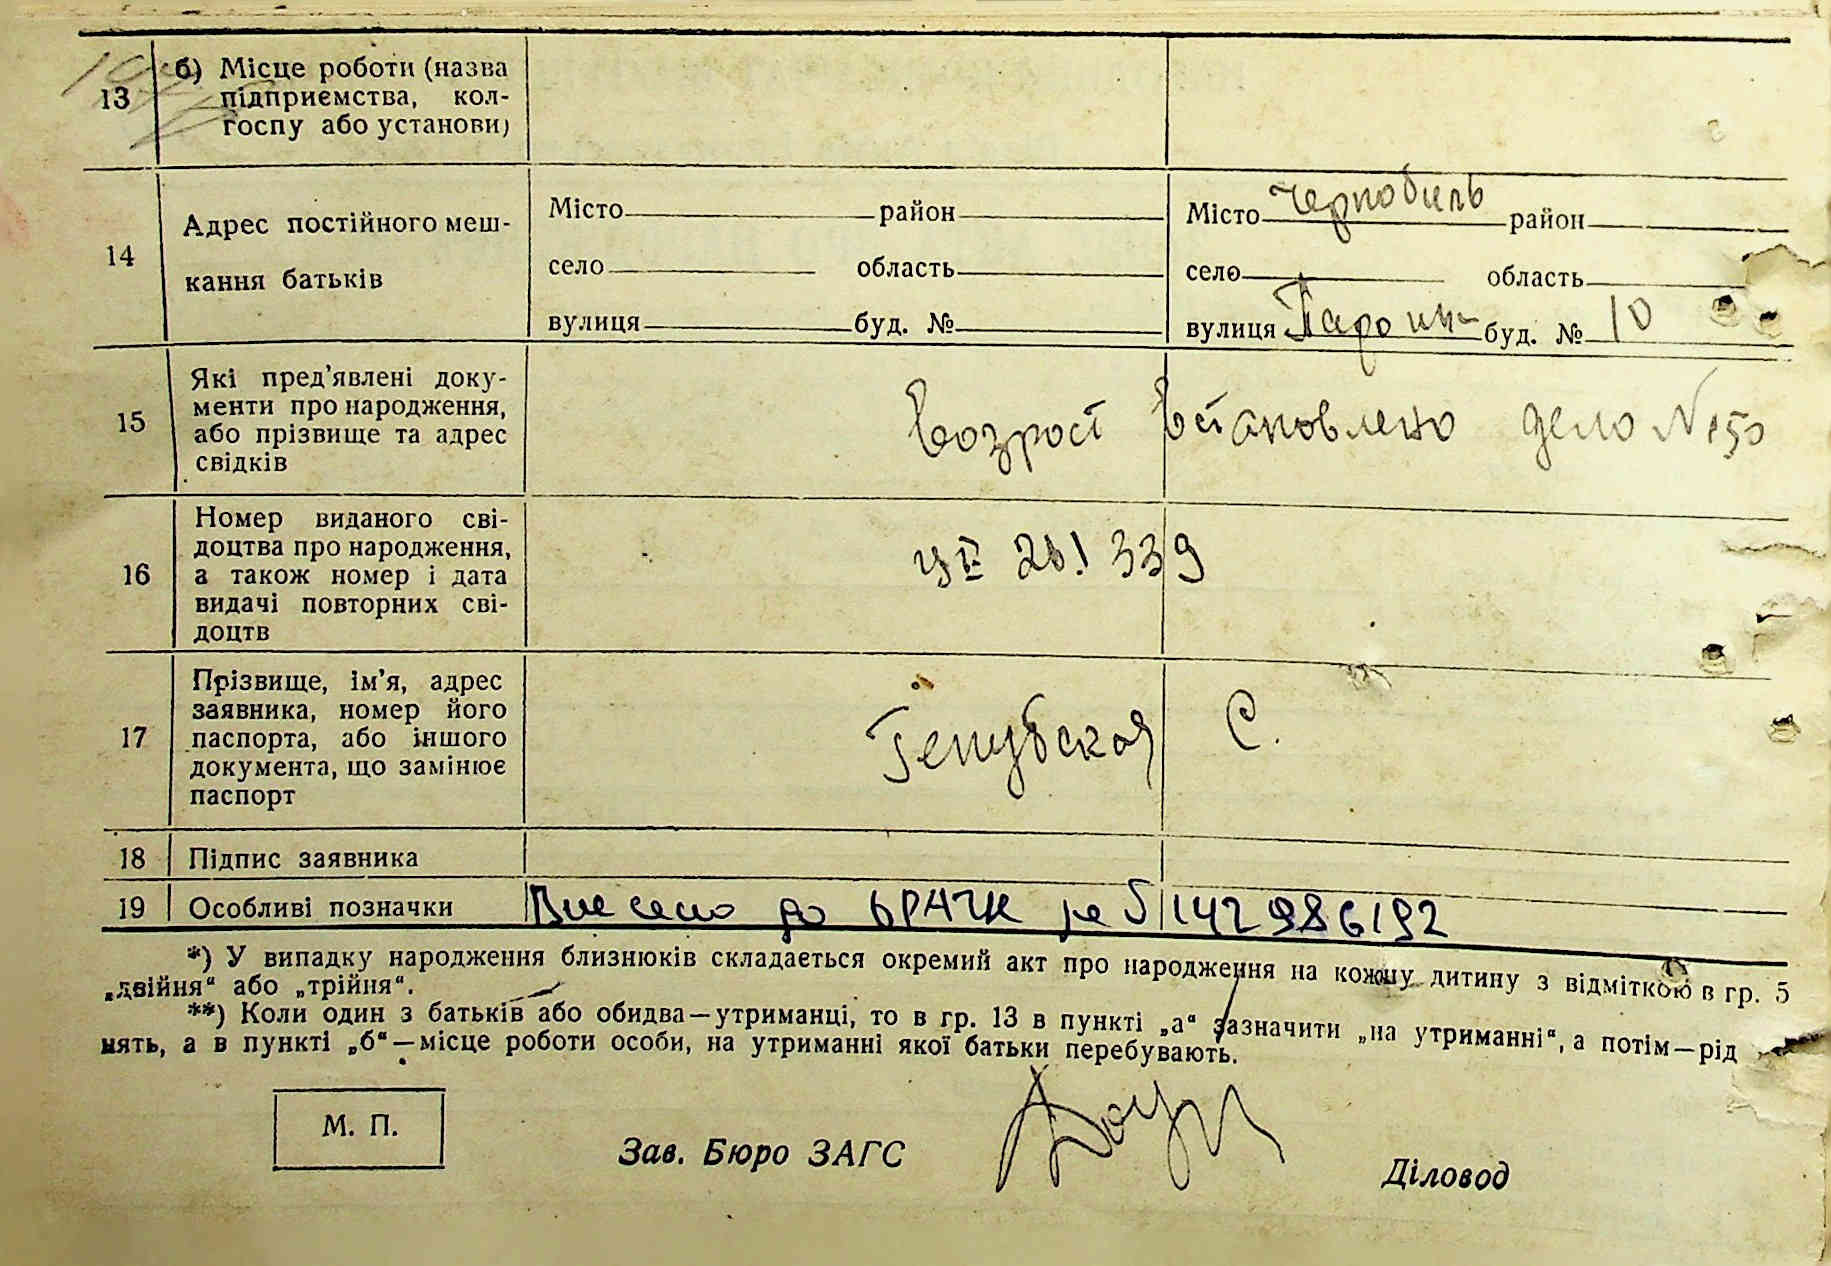 13 б) Місце роботи (назва
підприємства, кол-
госпу або установи)
14 Адрес постійного меш-
кання батьків
Місто район
село область
вулиця буд. №
Місто Чернобиль район
село область
вулиця буд. № 10
15 Які пред’явлені доку-
менти про народження,
або прізвище та адрес
свідків
Возрост встановлено дело №150
16 Номер виданого сві-
доцтва про народження,
а також номер і дата
видачі повторних сві-
доцтв
339
17 Прізвище, ім’я, адрес
заявника, номер його
паспорта, або іншого
документа, що замінює
паспорт
С.
18 Підпис заявника
19 Особливі позначки Внесено до
*) У випадку народження близнюків складається окремий акт про народження на кожну дитину з відміткою в гр. 5
„двійня“ або „трійня“.
**) Коли один з батьків або обидва—утриманці, то в гр. 13 в пункті „а“ зазначити „на утриманні“, а потім—рід
нять, а в пункті „б“—місце роботи особи, на утриманні якої батьки перебувають.
М. П.
Зав. Бюро ЗАГС
Діловод